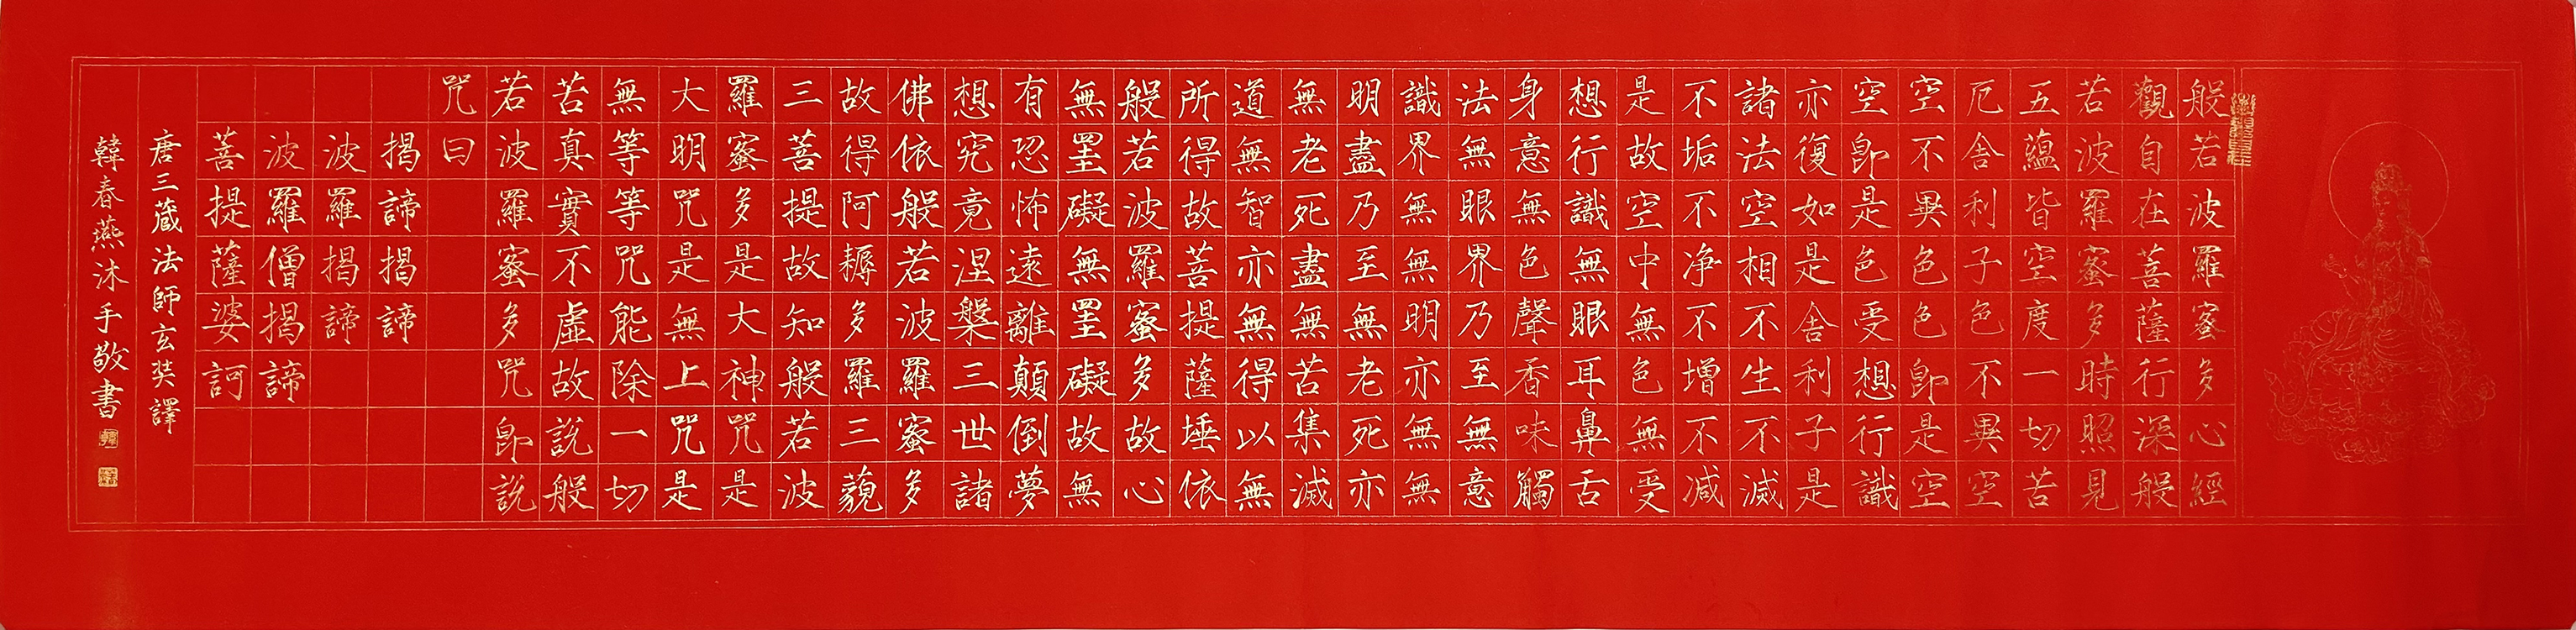 般若波羅蜜多心經
觀自在菩薩行深般
若波羅蜜多時照見
五蘊皆空度一切苦
厄舍利子色不異空
空不異色色即是空
空即是色受想行識
亦復如是舍利子是
諸法空相不生不滅
不垢不净不增不减
是故空中無色無受
想行識無眼耳鼻舌
身意無色聲香味觸
法無眼界乃至無意
識界無無明亦無無
明盡乃至無老死亦
無老死盡無苦集滅
道無智亦無得以無
所得故菩提薩埵依
般若波羅蜜多故心
無罣礙無罣礙故無
有恐怖遠離顛倒夢
想究竟涅槃三世諸
佛依般若波羅蜜多
故得阿耨多羅三藐
三菩提故知般若波
羅蜜多是大神咒是
大明咒是無上咒是
無等等咒能除一切
苦真實不虛故說般
若波羅蜜多咒即說
咒曰
揭諦揭諦
波羅揭諦
波羅僧揭諦
菩提薩婆訶
唐三藏法師玄奘譯
韓春燕沐手敬書